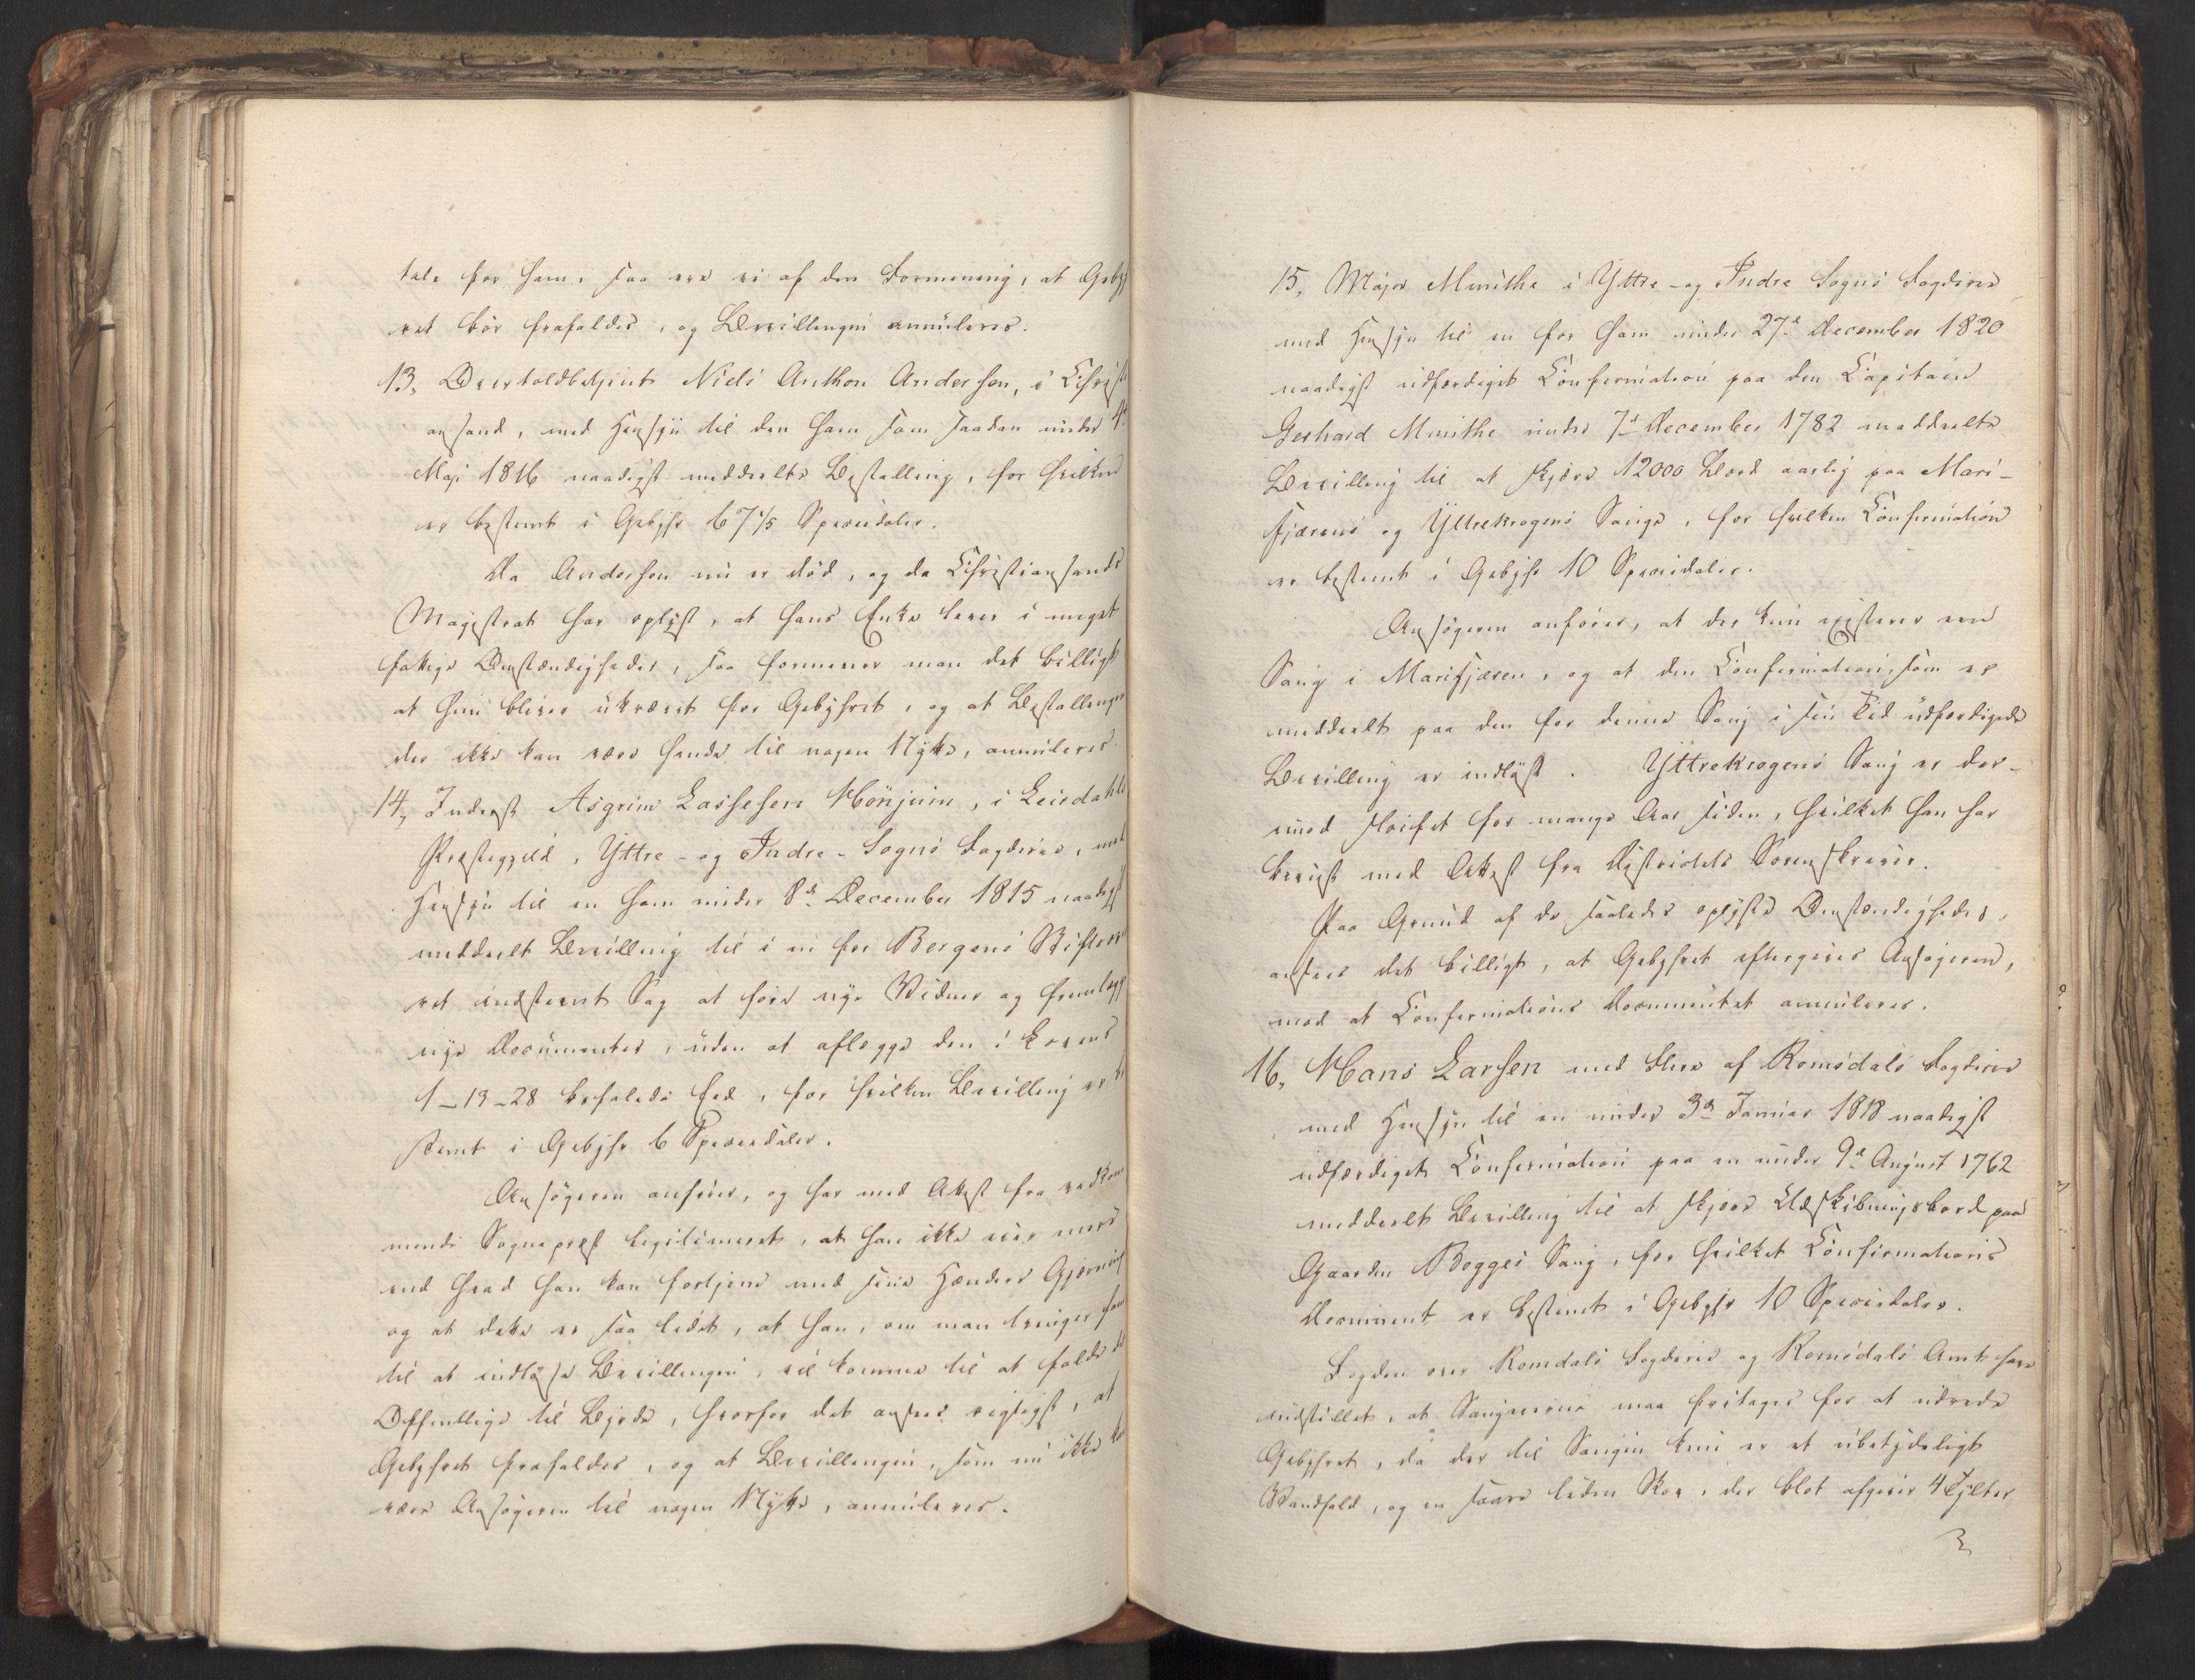 tale for ham, saa ere vi af den Formening, at Geby
ret bør frafaldes, og Bevillingen annuleres.
13, Overtoldbetjent Niels Anthon Andersen, i Christi
ansand, med Hensyn til den ham som saadan under 4de
Maji 1816 naadigst meddeelte Bestalling, for hvilken
er bestemt i Gebyhr 67 1/5 Speciedaler.
Da Andersen nu er død, og da Christiansands
Magistrat har oplyst, at hans Enke lever i meget
fattige Omstændigheder, saa formener man det billigt
at hun bliver ukrævet for Gebyhret, og at Bestallingen
der ikke kan være hende til nogen Nytte, annuleres.
14, Inderst Asgrim Lassesen Hønjum, i Leirdahls
Præstegjeld, Yttre- og Indre-Sogns Fogderie, med
Hensyn til en ham under 8de December 1815 naadigst
meddeelt Bevilling til i en for Bergens Stiftsover
ret indstevnt Sag at føre nye Vidner og fremlægge
nye Documenter, uden at aflægge den i Lovens
1-13-28 befalede Eed, for hvilken Bevilling er be
stemt i Gebyhr 6 Speciedaler.
Ansøgeren anfører, og har med Attest fra vedkom
mende Sognepræst legitimeret, at han ikke eier mere
end hvad han kan fortjene med sine Hænders Gjerning
og at dette er saa lidet, at han, om man tvinger ham
til at indløse Bevillingen, vil komme til at falde det
Offentlige til Byrde, hvorfor det ansees rigtigst, at
Gebyhret frafaldes, og at Bevillingen, som nu ikke kan
være Ansøgeren til nogen Nytte, annuleres.
15, Major Munthe i Yttre- og Indre Sogns Fogderie
med Hensyn til en for ham under 27de December 1820
naadigst udfærdiget Confirmation paa den Capitain
Gerhard Munthe under 7de December 1782 meddeelte
Bevilling til at skjære 12000 Bord aarlig paa Mari-
fjærens og Yttrekrogens Sauge, for hvilken Confirmation
er bestemt i Gebyhr 10 Speciedaler.
Ansøgeren anfører, at der kun existerer een
Saug i Marifjæren, og at den Confirmation, som er
meddeelt paa den for denne Saug i sin Tid udfærdigede
Bevilling er indløst. Yttrekrogens Saug er der-
imod sløifet for mange Aar siden, hvilket han har
beviist med Attest fra Districtets Sorenskriver.
Paa Grund af de saaledes oplyste Omstændigheder,
ansees det billigt, at Gebyhret eftergives Ansøgeren,
mod at Confirmations Documentet annuleres.
16, Hans Larsen med Flere af Romsdals Fogderie
med Hensyn til en under 3die Januar 1818 naadigst
udfærdiget Confirmation paa en under 9de August 1762
meddeelt Bevilling til at skjære Udskibningsbord paa
Gaarden Bogges Saug, for hvilket Confirmations
Document er bestemt i Gebyhr 10 Speciedaler.
Fogden over Romdals Fogderie og Romsdals Amt have
indstillet, at Saugeierne maa fritages for at udrede
Gebyhret, da der til Saugen kun er et ubetydeligt
Vandfald, og en saare liden Skov, der blot afgiver 4 Tylter